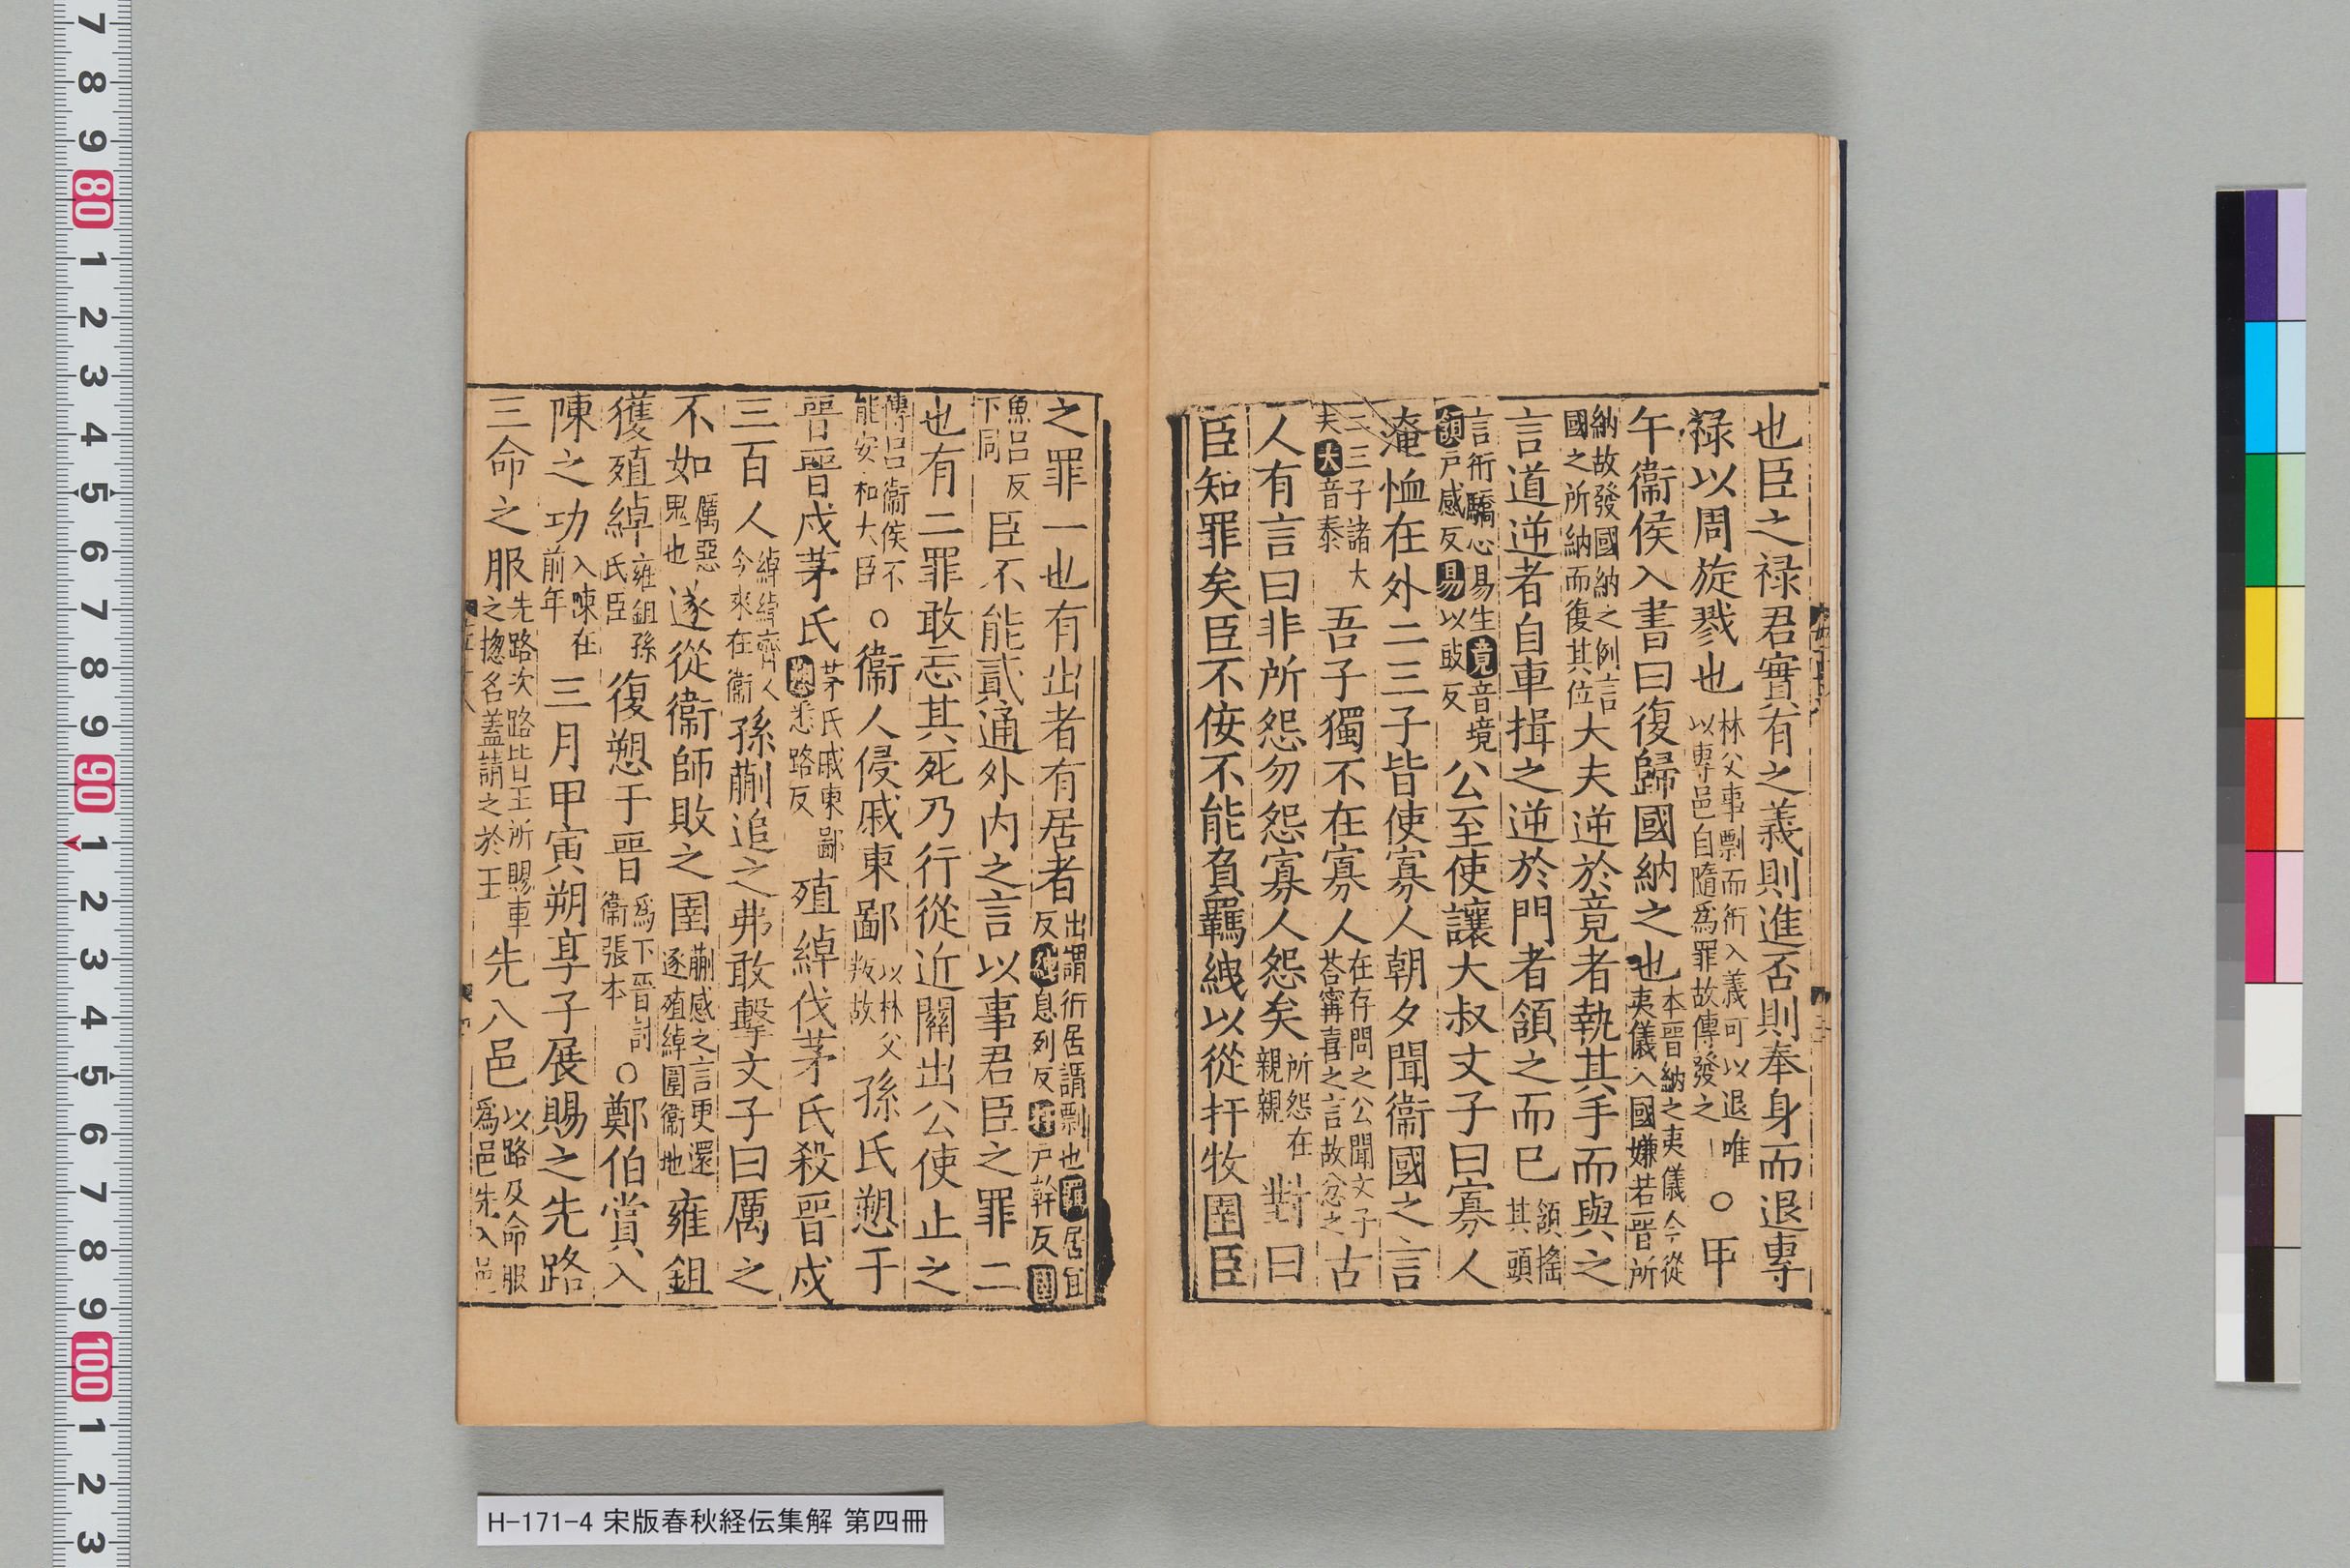 也臣之祿君實有之義則進否則奉身而退專
祿以周旋戮也林父事剽而衎入義可以退唯以專邑自隨爲罪故傳發之○甲
午衞侯入書曰復歸國納之也本晉納之夷儀今從夷儀入國嫌若晉所
納故發國納之例言國之所納而復其位大夫逆於竟者執其手而與之
言道逆者自車揖之逆於門者頷之而已頷搖其頭
言衎驕心易生竟音境頷戸感反易以豉反公至使讓大叔文子曰寡人
淹恤在外二三子皆使寡人朝夕聞衞國之言
二三子諸大夫大音泰吾子獨不在寡人在存問之公聞文子荅甯喜之言故忿之古
人有言曰非所怨勿怨寡人怨矣所怨在親親對曰
臣知罪矣臣不佞不能負羈絏以從扞牧圉臣
之罪一也有出者有居者出謂衎居謂剽也羈居宜反絏息列反扞戸幹反圉
魚呂反下同臣不能貳通外内之言以事君臣之罪二
也有二罪敢忘其死乃行從近關出公使止之
傳言衞侯不能安和大臣○衞人侵戚東鄙以林父叛故孫氏愬于
晉晉戍茅氏茅氏戚東鄙愬悉路反殖綽伐茅氏殺晉戍
三百人綽綽齊人今來在衞孫蒯追之弗敢擊文子曰厲之
不如厲惡鬼也遂從衞師敗之圉蒯感之言更還逐殖綽圉衞地雍鉏
獲殖綽雍鉏孫氏臣復愬于晉爲下晉討衞張本○鄭伯賞入
陳之功入陳在前年三月甲寅朔享子展賜之先路
三命之服先路次路皆王所賜車之揔名蓋請之於王先八邑以路及命服爲邑先八邑
H-171-4 宋版春秋経伝集解 第四冊
7 8 9 80 1 2 3 4 5 6 7 8 9 90 1 2 3 4 5 6 7 8 9 100 1 2 3